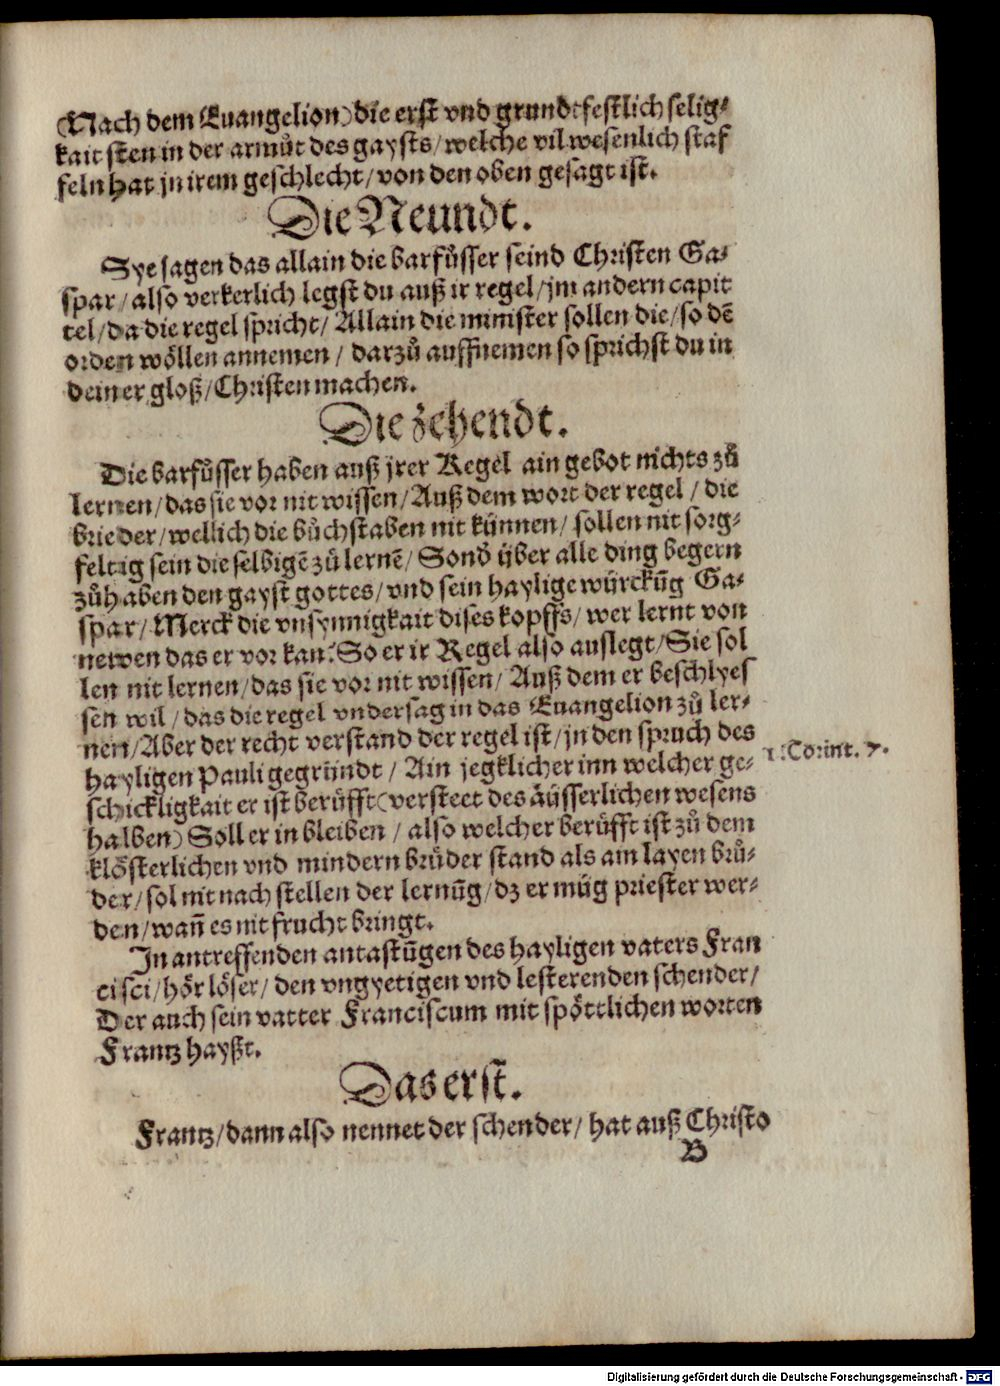 (Nach dem Euangelion) die erst vnd grundtfestlich selig⸗
kait sten in der armůt des gaysts / welche vil wesenlich staf
feln hat jn irem geschlecht / von den oben gesagt ist.
Die Neundt.
Sye sagen das allain die barfůsser seind Christen Ga⸗
spar / also verkerlich legst du auß ir regel / jm andern capit
tel / da die regel spricht / Allain die minister sollen die / so dẽ
orden wöllen annemen / darzů auffnemen so sprichst du in
deiner gloß / Christen machen.
Die zehendt.
Die barfůsser haben auß jrer Regel ain gebot nichts zů
lernen / das sie vor nit wissen / Auß dem wort der regel / die
brieder / wellich die bůchstaben nit künnen / sollen nit sorg⸗
feltig sein die selbigẽ zů lernẽ / Sond' über alle ding begern
zů haben den gayst gottes / vnd sein haylige würckũg Ga⸗
spar / Merck die vnsynnigkait dises kopffs / wer lernt von
newen das er vor kan: So er ir Regel also auslegt / Sie sol
len nit lernen / das sie vor nit wissen / Auß dem er beschlyes
sen wil / das die regel vndersag in das Euangelion zů ler⸗
nen / Aber der recht verstand der regel ist / jn den spruch des
hayligen Pauli gegründt / Ain jegklicher inn welcher ge⸗
schickligkait er ist berůfft (versteet des äüsserlichen wesens
halben) Soll er in bleiben / also welcher berůfft ist zů dem
klösterlichen vnd mindern brůder stand als ain layen brů⸗
der / sol nit nach stellen der lernũg / dz er müg priester wer⸗
den / wañ es nit frucht bringt.
1. Corint. 7.
In antreffenden antastũgen des hayligen vaters Fran
cisci / hör löser / den vngyetigen vnd lesterenden schender /
Der auch sein vatter Franciscum mit spöttlichen worten
Frantz hayßt.
Das erst.
Frantz / dann also nennet der schender / hat auß Christo
B
Digitalisierung gefördert durch die Deutsche Forschungsgemeinschaft - DFG